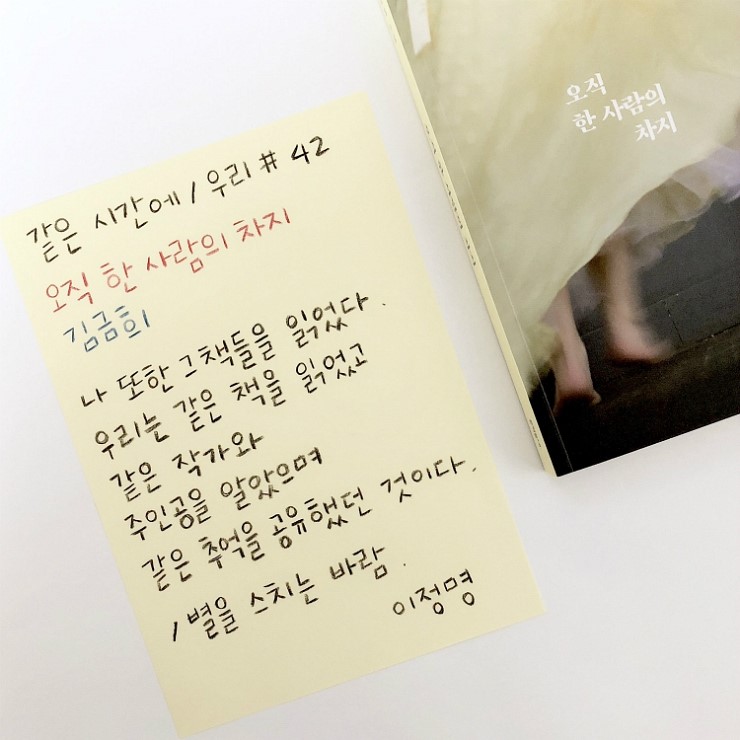 같은 시간에 / 우리 # 42
오직 한 사람의 차지
김금희
나 또한 그 책들을 읽었다.
우리는 같은 책을 읽었고
같은 작가와
주인공을 알았으며
같은 추억을 공유했던 것이다.
/ 별을 스치는 바람.
이정명
오직
한 사람의
차지